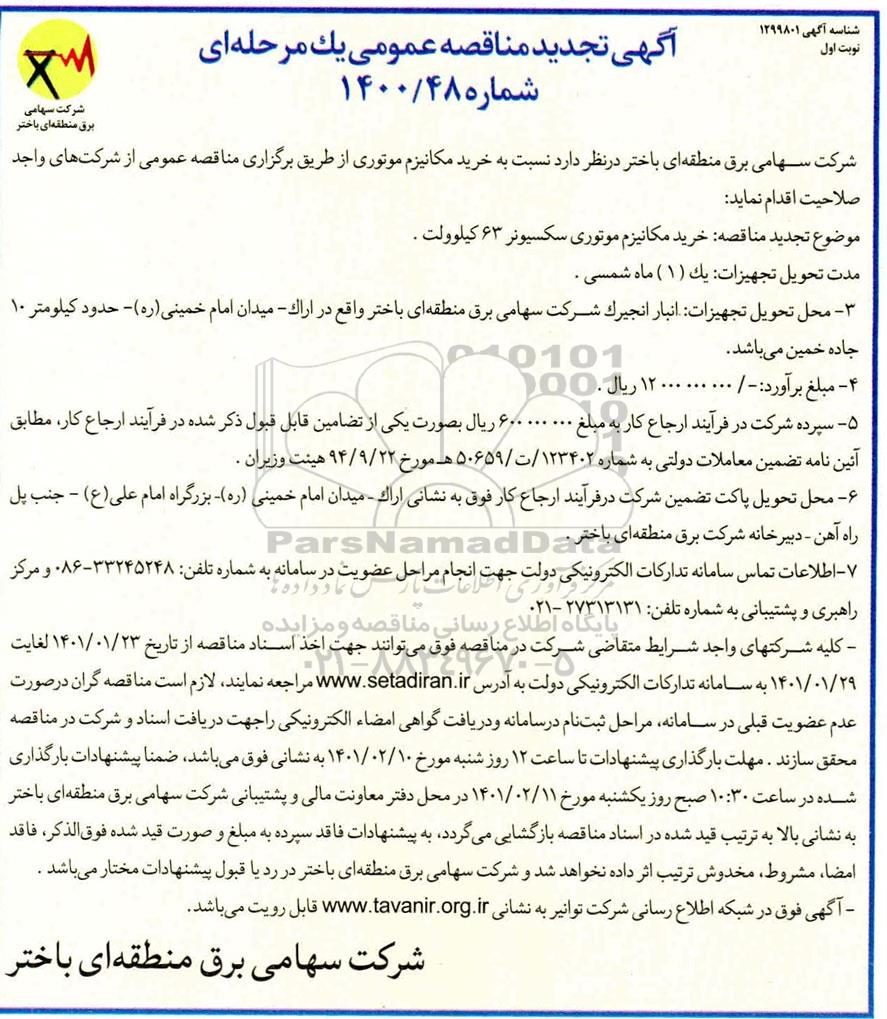 شناسه آگهی ۱۲۹۹۸۰۱
نوبت اول
آگهی تجدید مناقصه عمومی یك مرحله‌ای
شماره ۱۴۰۰/۴۸
شرکت سهامی
برق منطقه‌ای باختر
شرکت ســهامی برق منطقه‌ای باختر درنظر دارد نسبت به خرید مکانیزم موتوری از طریق برگزاری مناقصه عمومی از شرکت‌های واجد
صلاحیت اقدام نماید:
موضوع تجدید مناقصه: خرید مکانیزم موتوری سکسیونر ۶۳ کیلوولت .
مدت تحویل تجهیزات: یك ( ۱ ) ماه شمسی .
۳- محل تحویل تجهیزات: انبار انجیرك شــرکت سهامی برق منطقه‌ای باختر واقع در اراك- میدان امام خمینی(ره)- حدود کیلومتر ۱۰
جاده خمین می‌باشد.
۴- مبلغ برآورد:-/ ۱۲ ۰۰۰ ۰۰۰ ۰۰۰ ریال .
۵- سپرده شرکت در فرآیند ارجاع کار به مبلغ ۶۰۰ ۰۰۰ ۰۰۰ ریال بصورت یکی از تضامین قابل قبول ذکر شده در فرآیند ارجاع کار، مطابق
آئین نامه تضمین معاملات دولتی به شماره ۱۲۳۴۰۲/ت/۵۰۶۵۹ هـ مورخ ۹۴/۹/۲۲ هیئت وزیران .
۶- محل تحویل پاکت تضمین شرکت درفرآیند ارجاع کار فوق به نشانی اراك - میدان امام خمینی (ره)- بزرگراه امام علی(ع) - جنب پل
راه آهن - دبیرخانه شرکت برق منطقه‌ای باختر .
ParsNamadData
۷-اطلاعات تماس سامانه تدارکات الکترونیکی دولت جهت انجام مراحل عضویت در سامانه به شماره تلفن: ۳۳۲۴۵۲۴۸-۰۸۶ و مرکز
راهبری و پشتیبانی به شماره تلفن: ۲۷۳۱۳۱۳۱ -۰۲۱
پایگاه اطلاع رسانی مناقصه و مزایده
- کلیه شــرکتهای واجد شــرایط متقاضی شــرکت در مناقصه فوق می‌توانند جهت اخذ اســناد مناقصه از تاریخ ۱۴۰۱/۰۱/۲۳ لغایت
۰۲۱-۸۸۳۴۹۶۷۰-۵
۱۴۰۱/۰۱/۲۹ به ســامانه تدارکات الکترونیکی دولت به آدرس www.setadiran.ir مراجعه نمایند، لازم است مناقصه گران درصورت
عدم عضویت قبلی در ســامانه، مراحل ثبت‌نام درسامانه ودریافت گواهی امضاء الکترونیکی راجهت دریافت اسناد و شرکت در مناقصه
محقق سازند . مهلت بارگذاری پیشنهادات تا ساعت ۱۲ روز شنبه مورخ ۱۴۰۱/۰۲/۱۰ به نشانی فوق می‌باشد، ضمنا پیشنهادات بارگذاری
شــده در ساعت ۱۰:۳۰ صبح روز یکشنبه مورخ ۱۴۰۱/۰۲/۱۱ در محل دفتر معاونت مالی و پشتیبانی شرکت سهامی برق منطقه‌ای باختر
به نشانی بالا به ترتیب قید شده در اسناد مناقصه بازگشایی می‌گردد، به پیشنهادات فاقد سپرده به مبلغ و صورت قید شده فوق‌الذکر، فاقد
امضا، مشروط، مخدوش ترتیب اثر داده نخواهد شد و شرکت سهامی برق منطقه‌ای باختر در رد یا قبول پیشنهادات مختار می‌باشد .
- آگهی فوق در شبکه اطلاع رسانی شرکت توانیر به نشانی www.tavanir.org.ir قابل رویت می‌باشد.
شرکت سهامی برق منطقه‌ای باختر